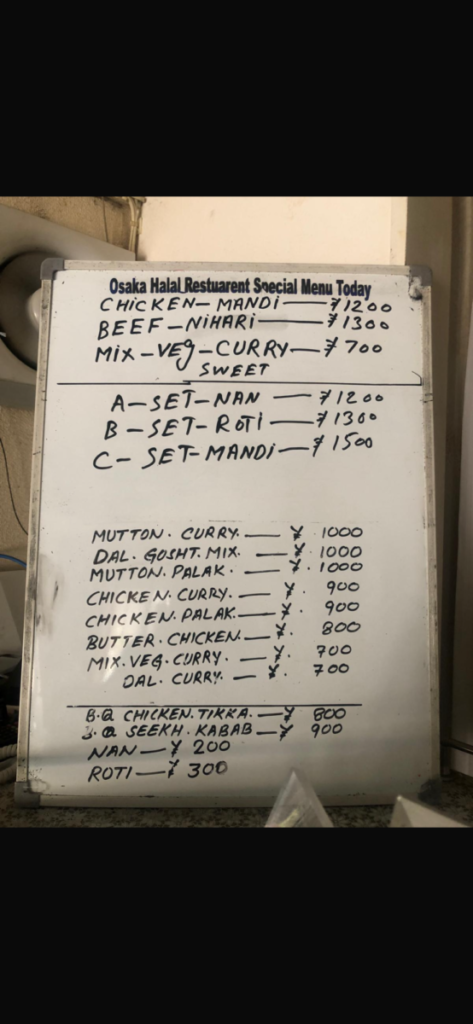 Osaka Halal Restuarent Special Menu Today
CHICKEN - MANDI — ¥1200
BEEF - NIHARI — ¥1300
MIX - VEG - CURRY — ¥700
SWEET
A - SET - NAN — ¥1200
B - SET - ROTI — ¥1300
C - SET - MANDI — ¥1500
MUTTON. CURRY. — ¥ 1000
DAL. GOSHT. MIX. — ¥ 1000
MUTTON. PALAK. — ¥. 1000
CHICKEN. CURRY. — ¥. 900
CHICKEN. PALAK. — ¥. 900
BUTTER. CHICKEN. — ¥. 800
MIX. VEG. CURRY. — ¥. 700
DAL. CURRY. — ¥. 700
B.Q CHICKEN. TIKKA. — ¥ 800
B.Q SEEKH. KABAB — ¥ 900
NAN — ¥ 200
ROTI — ¥ 300